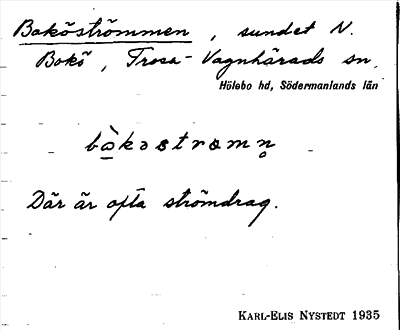 Bokőströmmen, sundet N.
Bokö, Trosa-Vagnhärads sn,
Hölebo hd, Södermanlands län
Där är ofta strömdrag.
KARL-ELIS NYSTEDT 1935